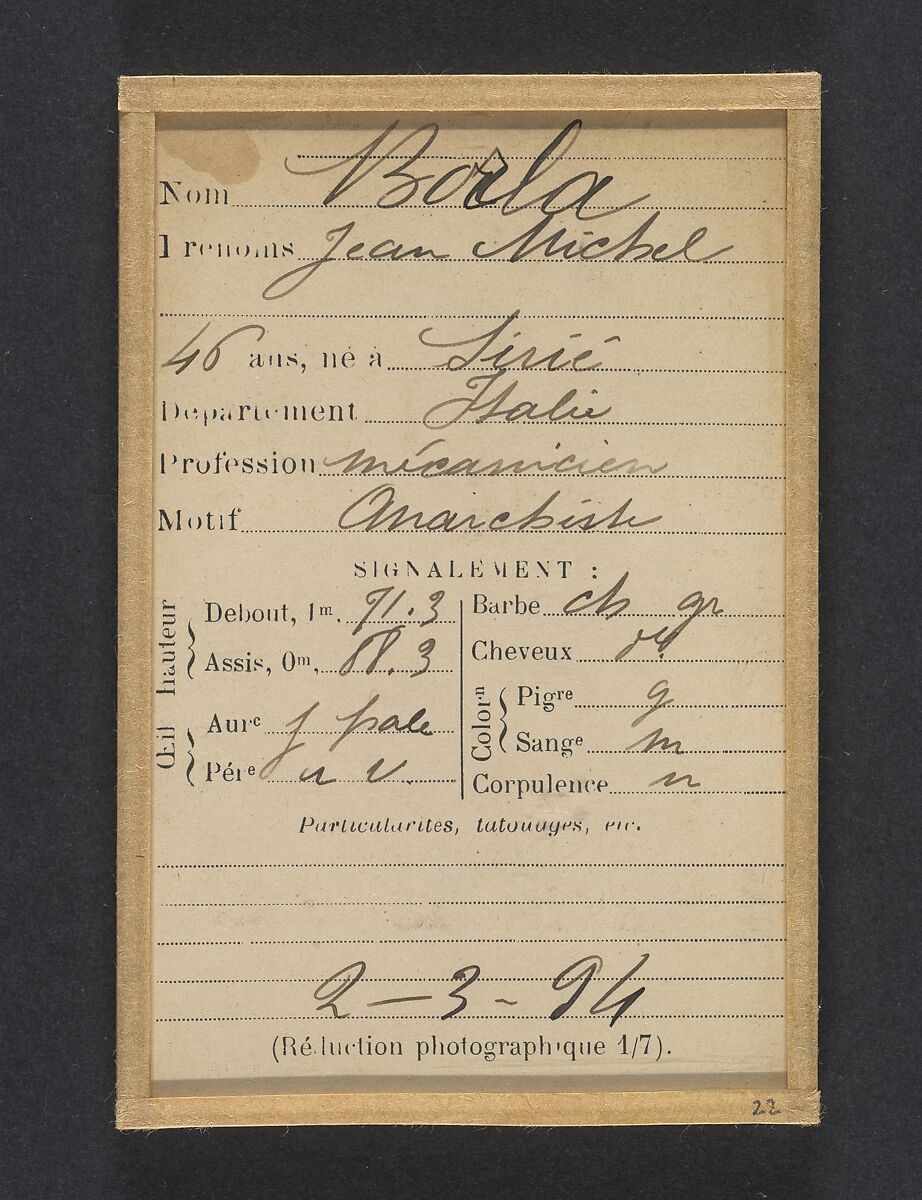 Nom Borla
Prenoms Jean Michel
46 ans, né à Sirié
Département Italie
Profession mécanicien
Motif Anarchiste
SIGNALEMENT :
hauteur
Debout, 1m, 71.3
Assis, 0m, 88.3
Œil
Aure j pale
Pére r v.
Barbe ch gr
Cheveux
Colorn
Pigre g
Sange m
Corpulence m
Particularités, tatouages, etc.
2-3-94
(Réduction photographique 1/7).
22